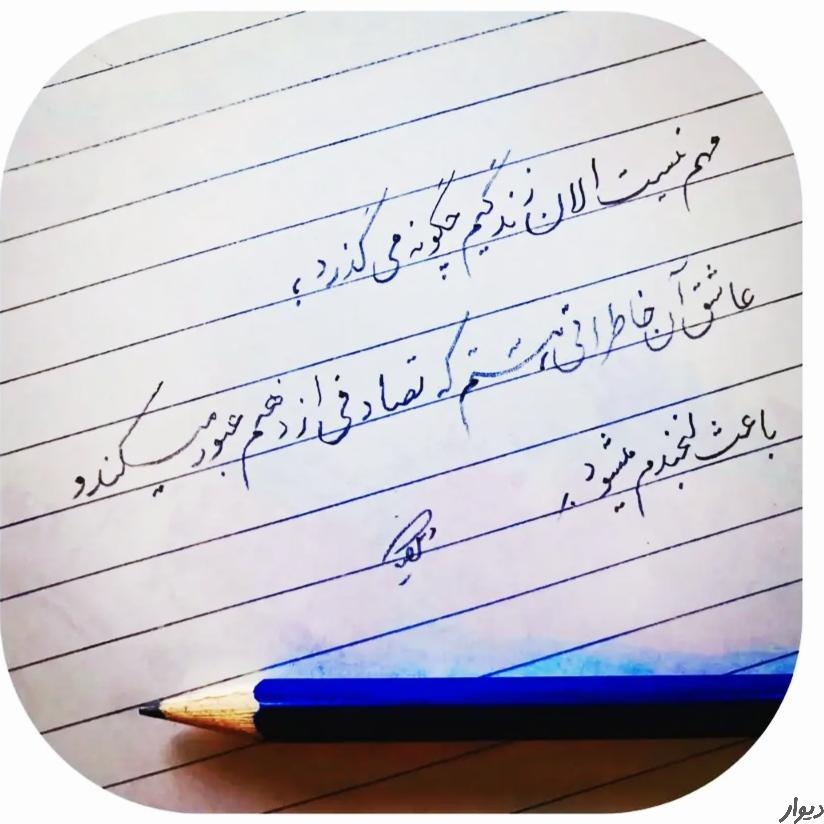 مهم نیست الان زندگیم چگونه می گذرد،
عاشق آن خاطراتی هستم که تصادفی از ذهنم عبور میکند و
باعث لبخندم میشود.
دیوار